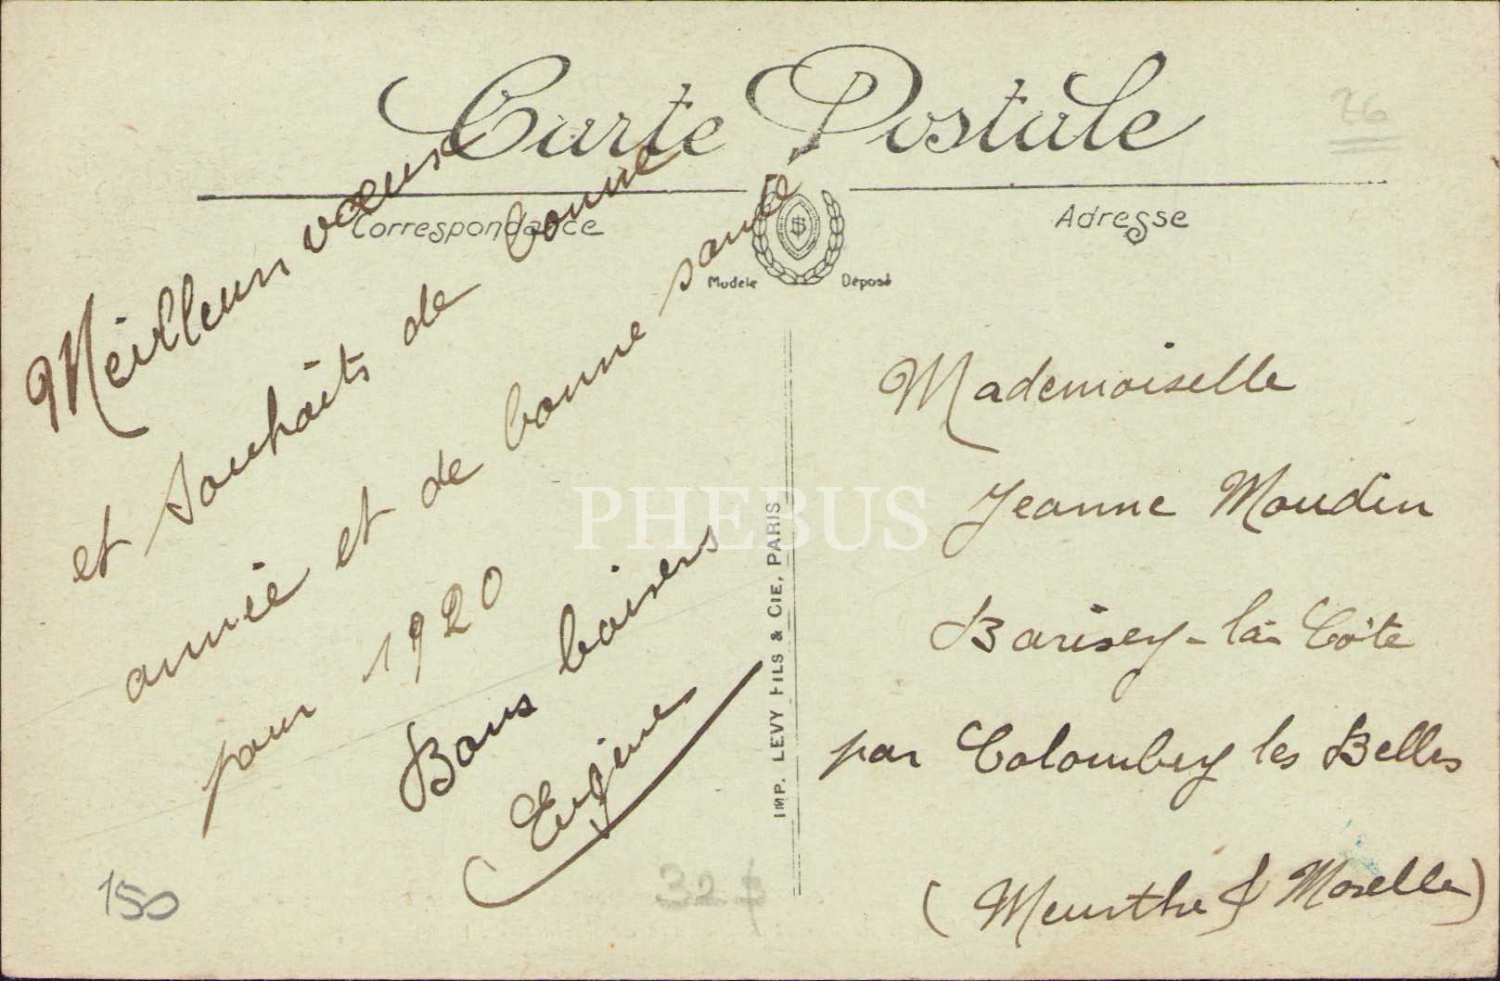 Carte Postale
Correspondance
Adresse
Modèle Déposé
Meilleurs vœux
et souhaits de bonne
année et de bonne santé
pour 1920
Bons baisers
Eugène
IMP. LEVY FILS & CIE, PARIS
Mademoiselle
Jeanne Moudin
Barisey-la-Côte
par Colombey les Belles
(Meurthe & Moselle)
PHEBUS
150
32 $
26